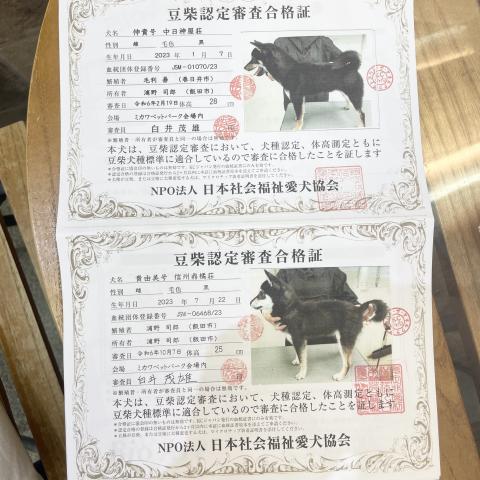 豆柴認定審査合格証
犬名 伸貴号 中日神屋荘
性別 雄 毛色 黒
生年月日 2023年 1月 7日
血統団体登録番号 JSM-01070/23
繁殖者 毛利 (春日井市)
所有者 浦野 司郎 (飯田市)
審査日 令和6年2月19日 体高 28 cm
会場 ミカワペットパーク会場内
審査員 白井茂雄
※繁殖者・所有者が審査員と同一の場合は無効です。
本犬は、豆柴認定審査において、犬種認定、体高測定ともに
豆柴犬種標準に適合しているので審査に合格したことを証します
NPO法人 日本社会福祉愛犬協会
豆柴認定審査合格証
犬名 貴由美号 信州森橘荘
性別 雌 毛色 黒
生年月日 2023年 7月 22日
血統団体登録番号 JSM-06468/23
繁殖者 浦野 司郎 (飯田市)
所有者 浦野 司郎 (飯田市)
審査日 令和6年10月7日 体高 25 cm
会場 ミカワペットパーク会場内
審査員 白井 茂雄
※繁殖者・所有者が審査員と同一の場合は無効です。
本犬は、豆柴認定審査において、犬種認定、体高測定ともに
豆柴犬種標準に適合しているので審査に合格したことを証します
NPO法人 日本社会福祉愛犬協会